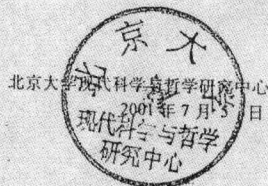 北京大学现代科学与哲学研究中心
2001年7月5日
北京大学
现代科学与哲学
研究中心